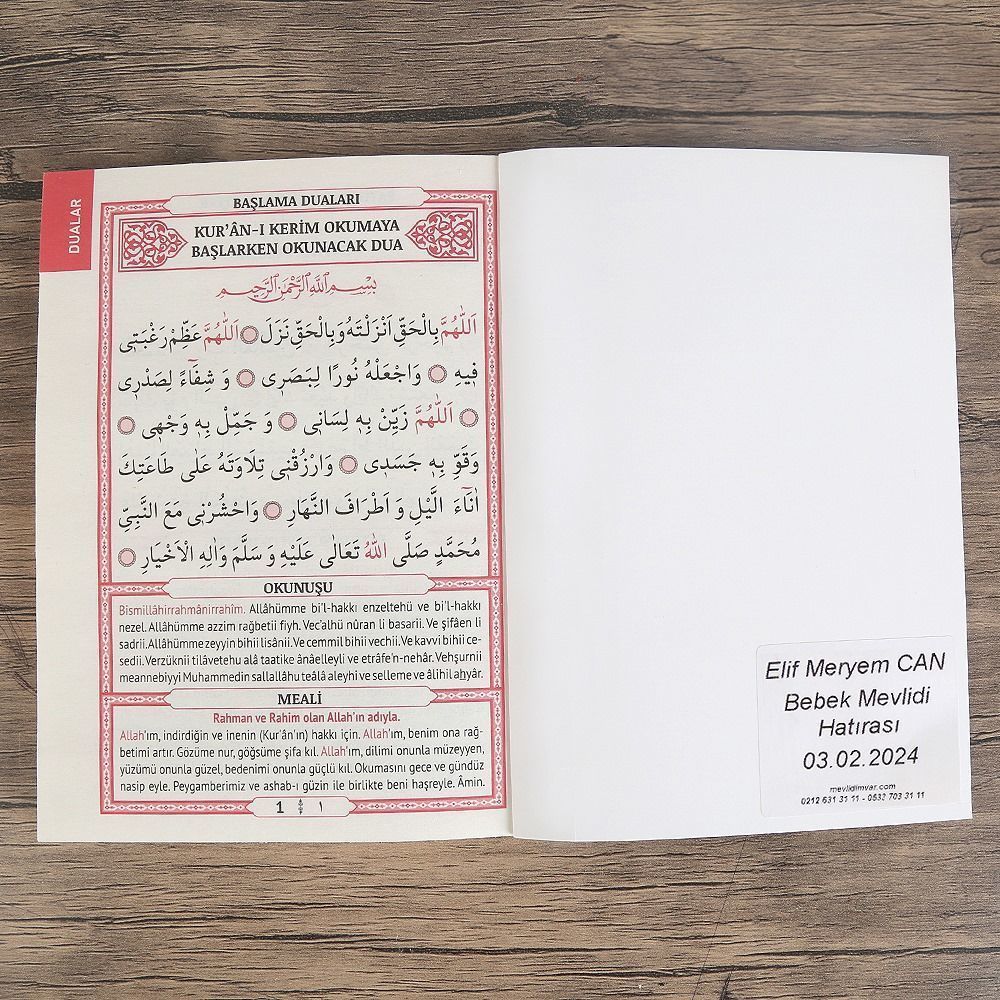 DUALAR
BAŞLAMA DUALARI
KUR'ÂN-I KERİM OKUMAYA
BAŞLARKEN OKUNACAK DUA
بِسْمِ اللّٰهِ الرَّحْمٰنِ الرَّحِيمِ
اَللّٰهُمَّ بِالْحَقِّ اَنْزَلْتَهُ وَبِالْحَقِّ نَزَلَ اَللّٰهُمَّ عَظِّمْ رَغْبَتٖى
فٖيهِ وَاجْعَلْهُ نُورًا لِبَصَرٖى وَ شِفَٓاءً لِصَدْرٖى
اَللّٰهُمَّ زَيِّنْ بِهٖ لِسَانٖى وَ جَمِّلْ بِهٖ وَجْهٖى
وَقَوِّ بِهٖ جَسَدٖى وَارْزُقْنٖى تِلَاوَتَهُ عَلٰى طَاعَتِكَ
اٰنَٓاءَ الَّيْلِ وَ اَطْرَافَ النَّهَارِ وَاحْشُرْنٖى مَعَ النَّبِىِّ
مُحَمَّدٍ صَلَّى اللّٰهُ تَعَالٰى عَلَيْهِ وَ سَلَّمَ وَاٰلِهِ الْاَخْيَارِ
OKUNUŞU
Bismillâhirrahmânirrahîm. Allâhümme bi'l-hakkı enzeltehü ve bi'l-hakkı
nezel. Allâhümme azzim rağbetii fiyh. Vec'alhü nûran li basarii. Ve şifâen li
sadrii. Allâhümme zeyyin bihii lisânii. Ve cemmil bihii vechii. Ve kavvi bihii ce-
sedii. Verzüknii tilâvetehu alâ taatike ânâelleyli ve etrâfe'n-nehâr. Vehşurnii
meannebiyyi Muhammedin sallallâhu teâlâ aleyhi ve selleme ve âlihil aḫyâr.
MEALİ
Rahman ve Rahim olan Allah'ın adıyla.
Allah'ım, indirdiğin ve inenin (Kur'ân'ın) hakkı için. Allah'ım, benim ona rağ-
betimi artır. Gözüme nur, göğsüme şifa kıl. Allah'ım, dilimi onunla müzeyyen,
yüzümü onunla güzel, bedenimi onunla güçlü kıl. Okumasını gece ve gündüz
nasip eyle. Peygamberimiz ve ashab-ı güzin ile birlikte beni haşreyle. Âmin.
1 ١
Elif Meryem CAN
Bebek Mevlidi
Hatırası
03.02.2024
mevlidimvar.com
0212 631 31 11 - 0532 703 31 11